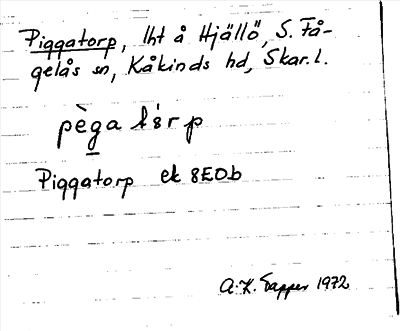 Piggatorp, lht å Hjällö, S. Få-
gelås sn, Kåkinds hd, Skar. l.
pèga
Piggatorp ek 8E0b
A.K. Sapper 1972